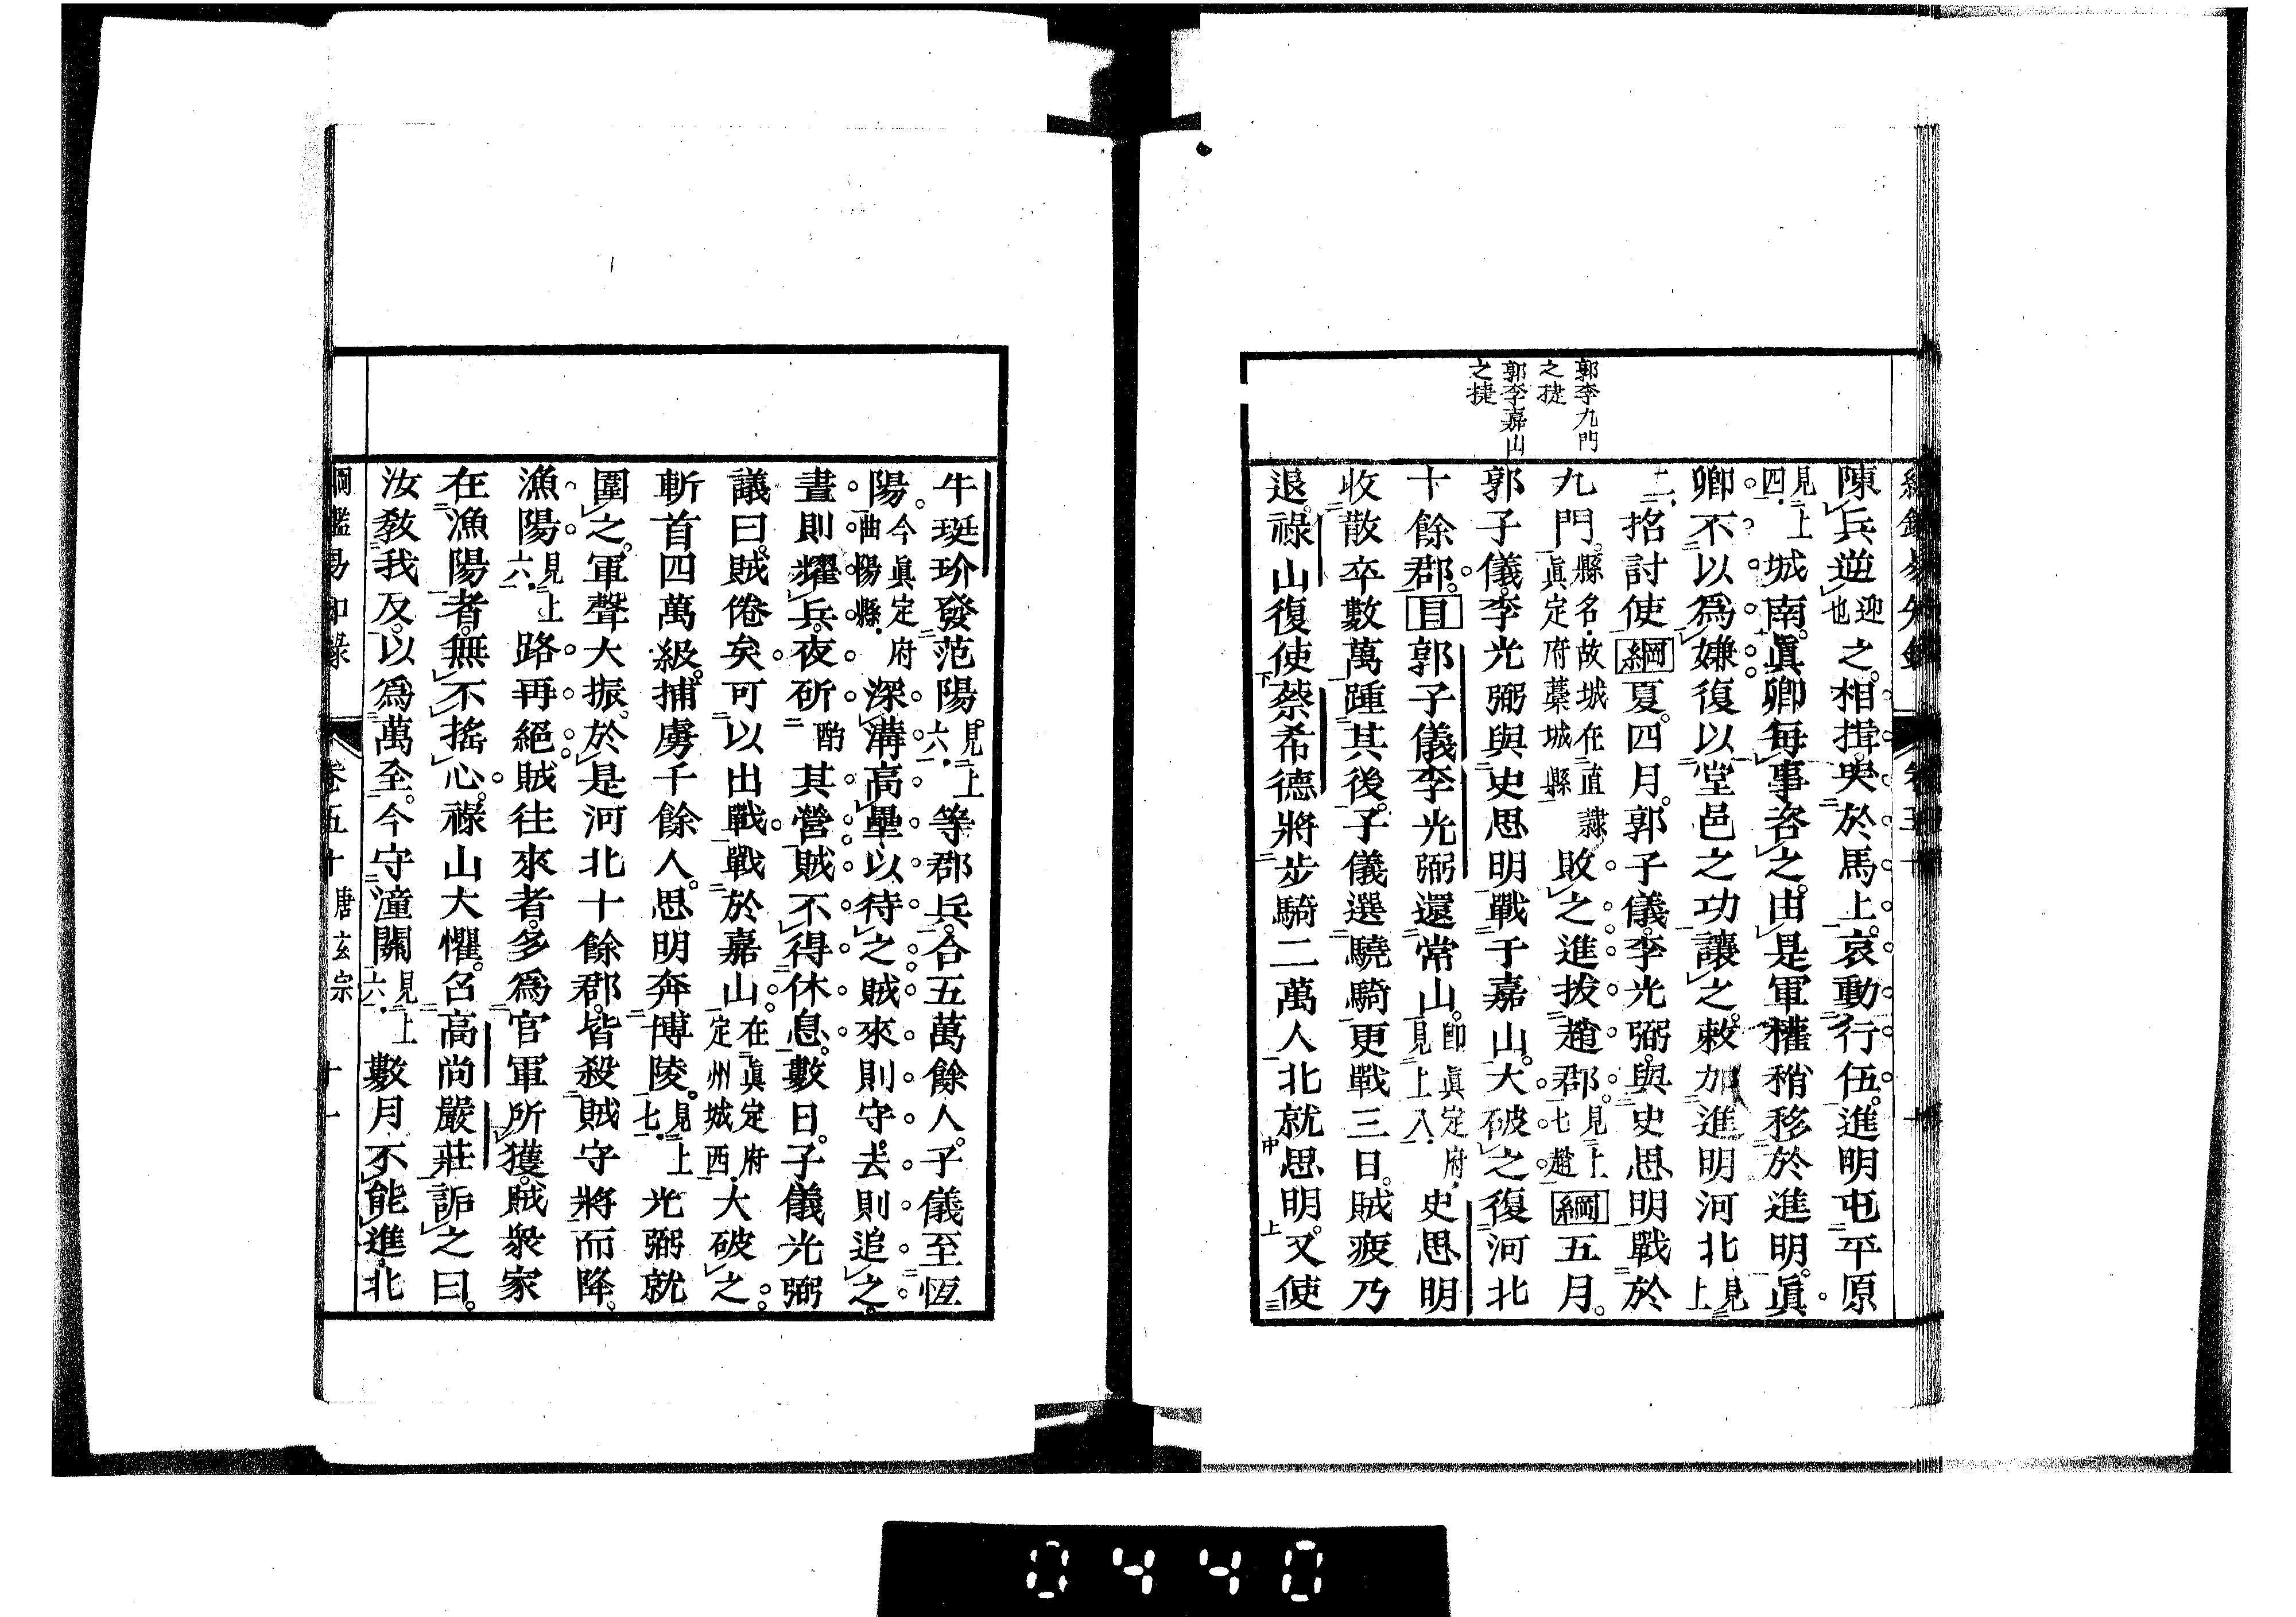 郭李九門
之捷
郭李嘉山
之捷
陳兵逆迎也之。相揖。哭於馬上。哀動行伍。進明屯平原
見上四.城南。眞卿每事咨之。由是軍權稍移於進明。眞
卿不以爲嫌。復以堂邑之功讓之。敕加進明河北見上
二.招討使。綱夏。四月。郭子儀。李光弼。與史思明戰於
九門。縣名.故城在直隸眞定府藁城縣敗之。進拔趙郡。見上七趙綱五月。
郭子儀。李光弼與史思明戰于嘉山。大破之。復河北
十餘郡。目郭子儀李光弼還常山。卽眞定府.見上八.史思明
收散卒數萬踵其後。子儀選驍騎更戰三日。賊疲乃
退。祿山復使蔡希德將步騎二萬人北就思明。又使
牛珽玠發范陽。見上六.等郡兵。合五萬餘人。子儀至恆
陽。今眞定府曲陽縣.深溝高壘以待之。賊來則守。去則追之。
晝則耀兵。夜斫酌其營。賊不得休息。數日。子儀光弼
議曰。賊倦矣。可以出戰。戰於嘉山。在眞定府定州城西.大破之。
斬首四萬級。捕虜千餘人。思明奔博陵。見上七.光弼就
圍之。軍聲大振。於是河北十餘郡。皆殺賊守將而降。
漁陽見上六.路再絕。賊往來者。多爲官軍所獲。賊衆家
在漁陽者。無不搖心。祿山大懼。召高尚嚴莊詬之曰。
汝敎我反。以爲萬全。今守潼關見上六.數月不能進。北
綱鑑易知錄 卷五十 唐玄宗 十一
0440